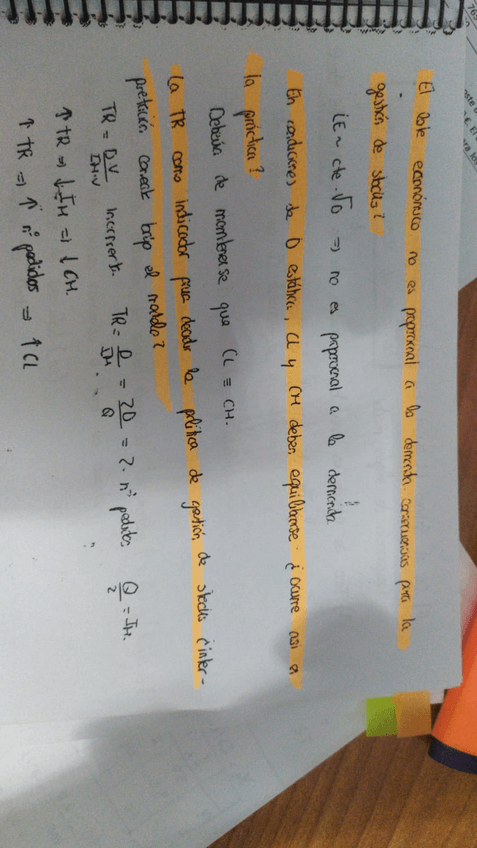 El lote económico no es proporcional a la demanda consecuencias para la
gestión de stocks?
LE ~ cte·√D ⇒ no es proporcional a la demanda.
En condiciones de D estática, CL y CH deben equilibrarse. ¿ocurre así a
la práctica?
Debería de mantenerse que CL = CH.
La TR como indicador para decidir la política de gestión de stocks ¿inter-
pretación correcta bajo el modelo?
TR = DV/IH·V incremento. TR = D/IH = 2D/Q = 2· nº pedidos Q/2 = IH.
↑ TR ⇒ ↓ IH ⇒ ↓ CH.
↑ TR ⇒ ↑ nº pedidos ⇒ ↑ CL